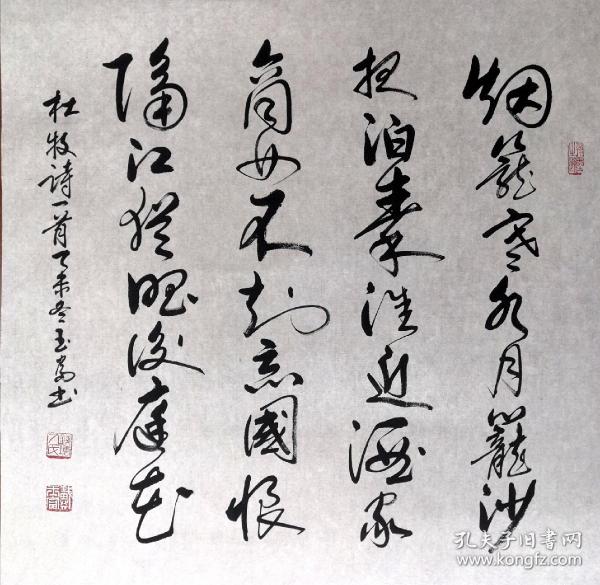 烟籠寒水月籠沙
夜泊秦淮近酒家
商女不知亡國恨
隔江猶唱後庭花
杜牧詩一首 未冬玉 书
孔夫子旧书网
www.kongfz.com